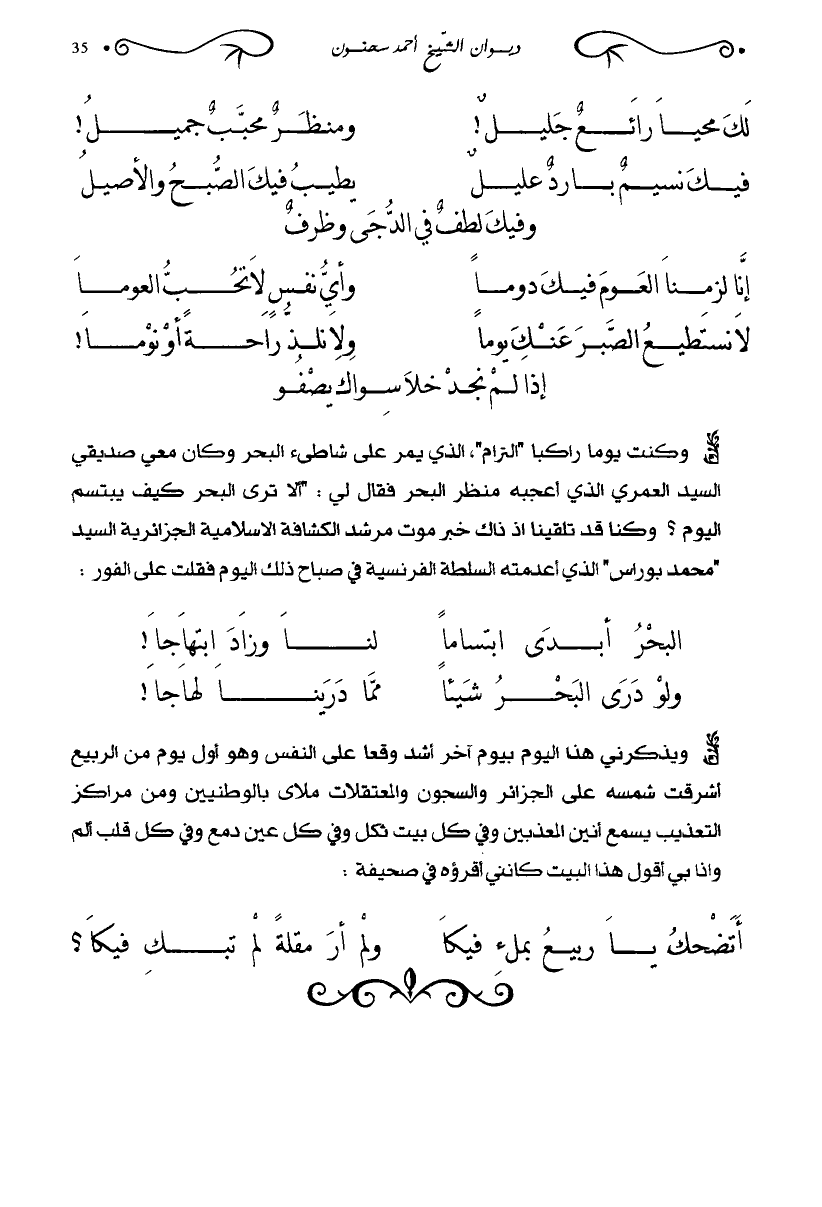 ديوان الشّيخ أحمد سحنون 35
لَكَ محيـا رَائـعٌ جَليلٌ ! ومنظـرٌ محبَّبٌ جميلُ !
فيـكَ نسيمٌ بـاردٌ عليلٌ يطيبُ فيكَ الصُّبحُ والأصيلُ
وفيكَ لطفٌ في الدُّجَى وظرفٌ
إنَّا لزمنا العَومَ فيكَ دوماً وأيُّ نفسٍ لاَ تحُبُّ العوماَ
لاَ نستطيعُ الصَّبرَ عَنْكَ يوماً ولاَ نلذُّ رَاحةً أوْ نوْماَ !
إذا لمْ نجدْ خلاَ سِواك يصْفُو
وكنت يوما راكبا "الترام"، الذي يمر على شاطىء البحر وكان معي صديقي
السيد العمري الذي أعجبه منظر البحر فقال لي : "ألا ترى البحر كيف يبتسم
اليوم ؟ وكنا قد تلقينا اذ ذاك خبر موت مرشد الكشافة الاسلامية الجزائرية السيد
"محمد بوراس" الذي أعدمته السلطة الفرنسية في صباح ذلك اليوم فقلت على الفور :
البحْرُ أبـدَى ابتساماً لنـاَ وزادَ ابتهاَجاَ !
ولوْ دَرَى البَحْرُ شَيئاً ممَّا دَرَينـا لهَاجا !
ويذكرني هذا اليوم بيوم آخر أشد وقعا على النفس وهو أول يوم من الربيع
أشرقت شمسه على الجزائر والسجون والمعتقلات ملاى بالوطنيين ومن مراكز
التعذيب يسمع أنين المعذبين وفي كل بيت ثكل وفي كل عين دمع وفي كل قلب ألم
واذا بي أقول هذا البيت كانني أقرؤه في صحيفة :
أتَضْحكُ يـاَ ربيعُ بملءِ فيكاَ ولمْ أرَ مقلةً لمْ تبـكِ فيكاَ ؟